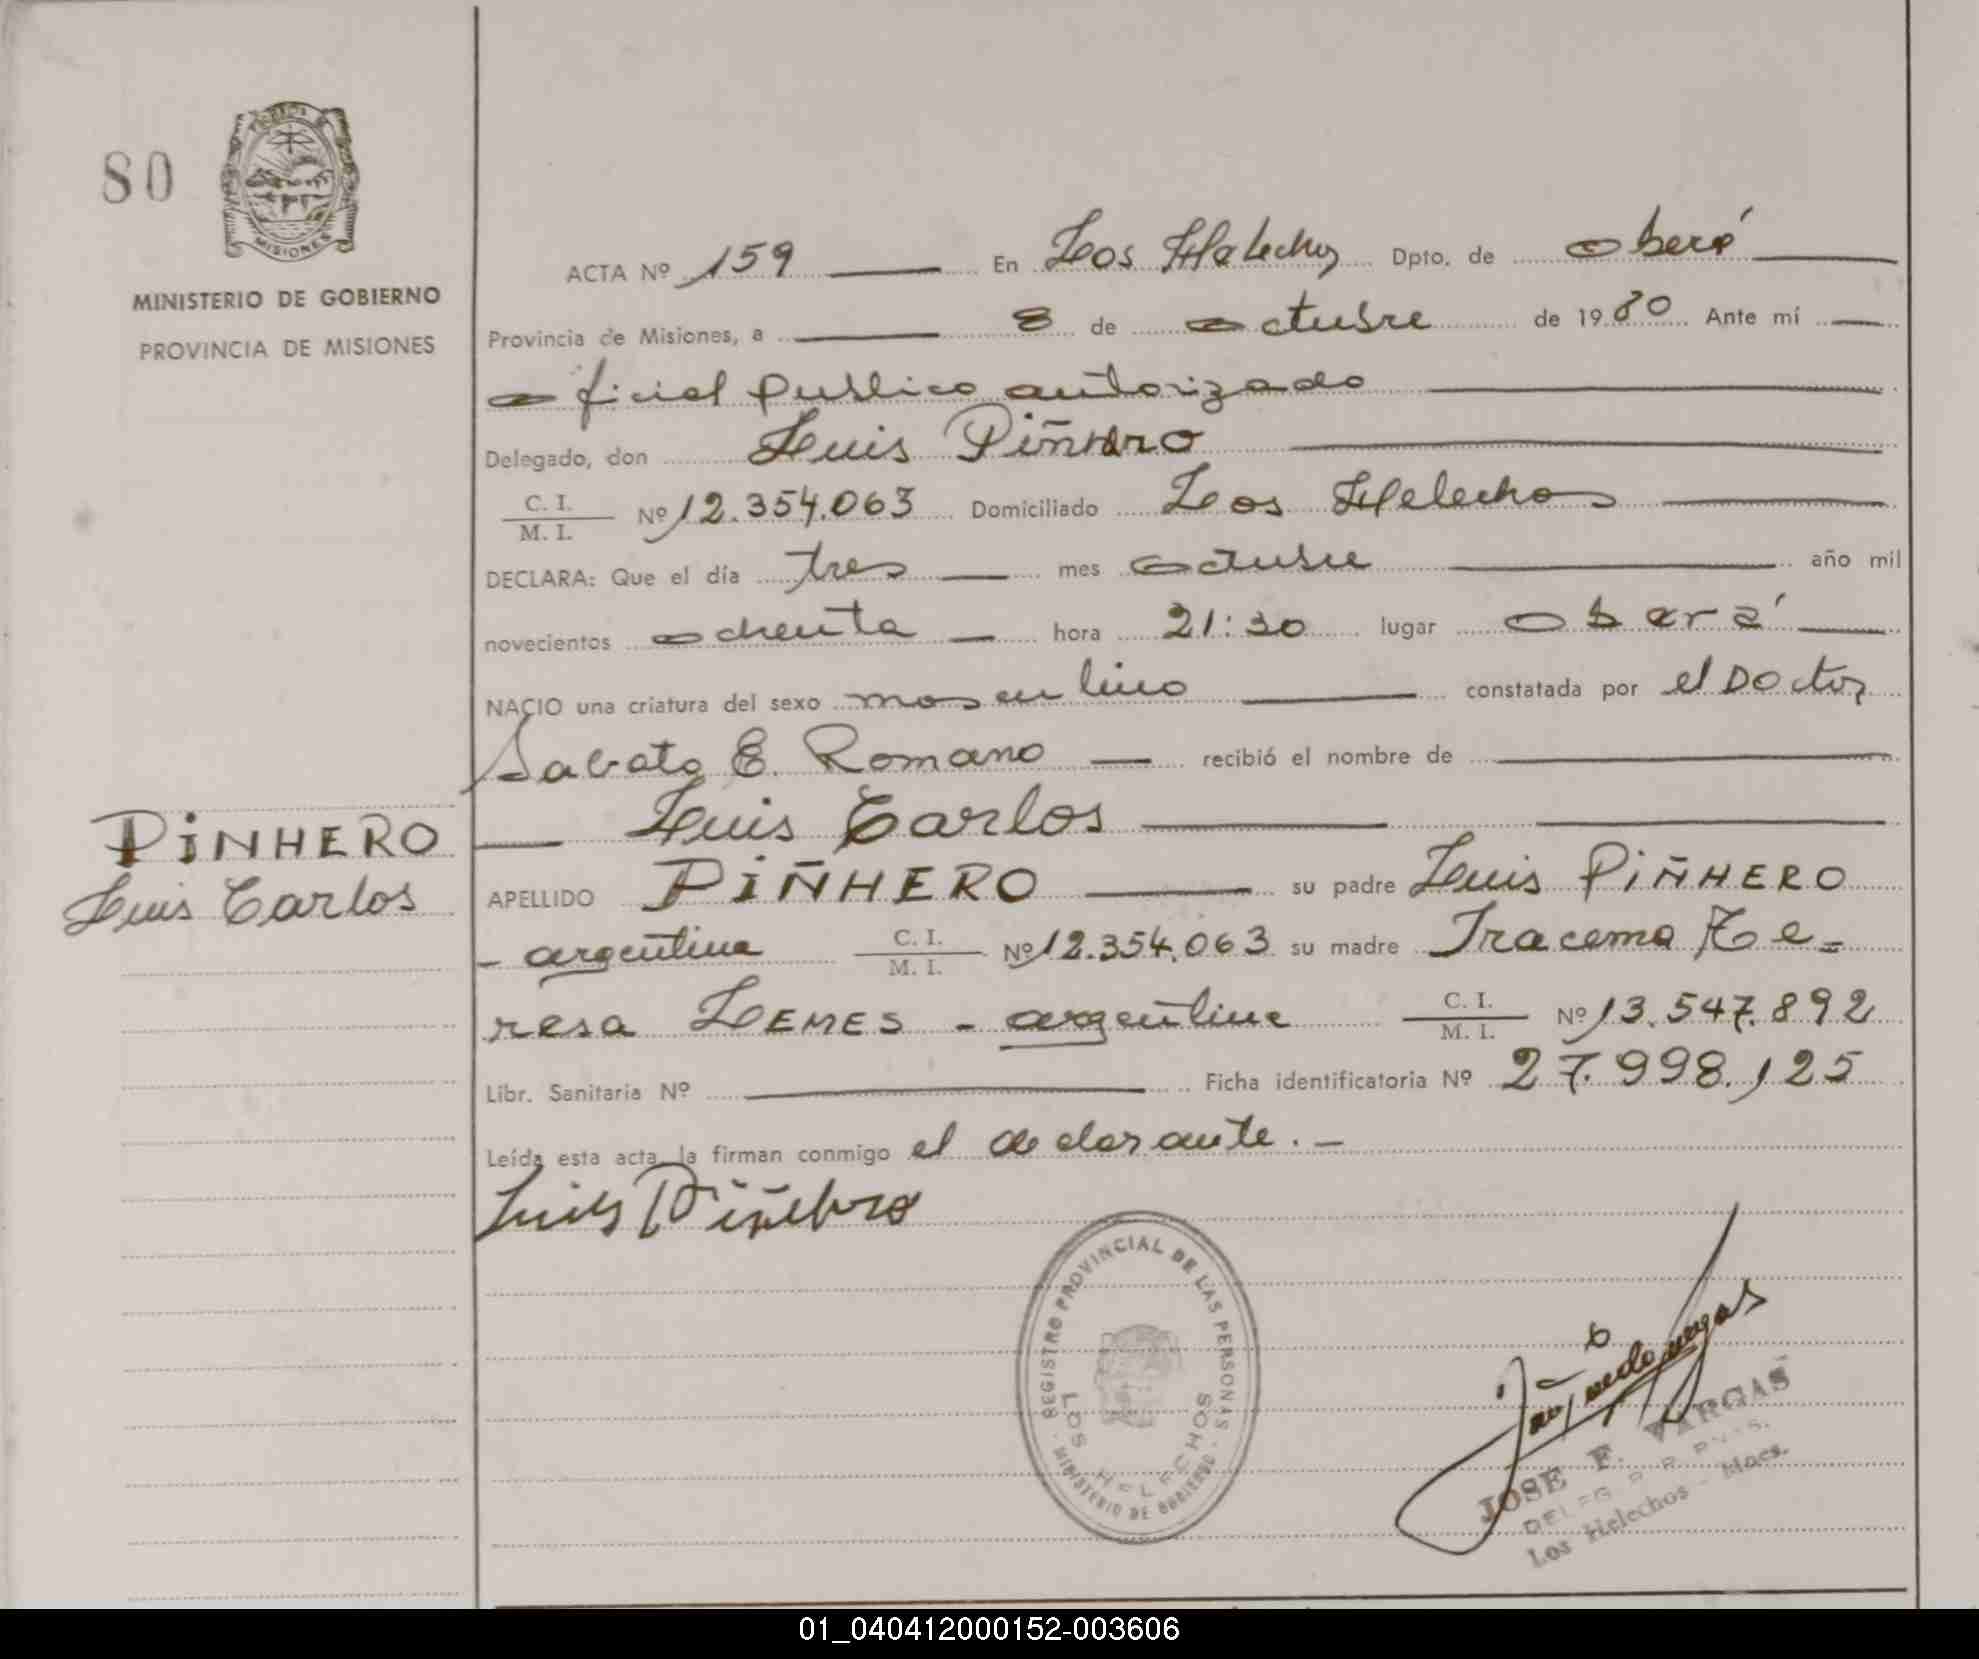 80
MISIONES
MINISTERIO DE GOBIERNO
PROVINCIA DE MISIONES
ACTA Nº 159 En Los Helechos Dpto. de Oberá
Provincia de Misiones, a 8 de octubre de 1980 Ante mí
oficial publico autorizado
Delegado, don Luis Piñhero
C. I.
M. I. Nº 12.354.063 Domiciliado Los Helechos
DECLARA: Que el día tres mes octubre año mil
novecientos ochenta hora 21:30 lugar Oberá
NACIO una criatura del sexo masculino constatada por el Doctor
Sabato E. Romano recibió el nombre de
Luis Carlos
PiNHERO
Luis Carlos
APELLIDO PiÑHERO su padre Luis PiÑHERO
- argentina C. I.
M. I. Nº 12.354.063 su madre Iracema Te-
resa LEMES - argentina C. I.
M. I. Nº 13.547.892
Libr. Sanitaria Nº Ficha identificatoria Nº 27.998.125
Leída esta acta la firman conmigo el declarante. -
Luis Piñehro
REGISTRO PROVINCIAL DE LAS PERSONAS
LOS HELECHOS
MINISTERIO DE GOBIERNO
JOSE F. VARGAS
Los Helechos - Mnes.
01_040412000152-003606